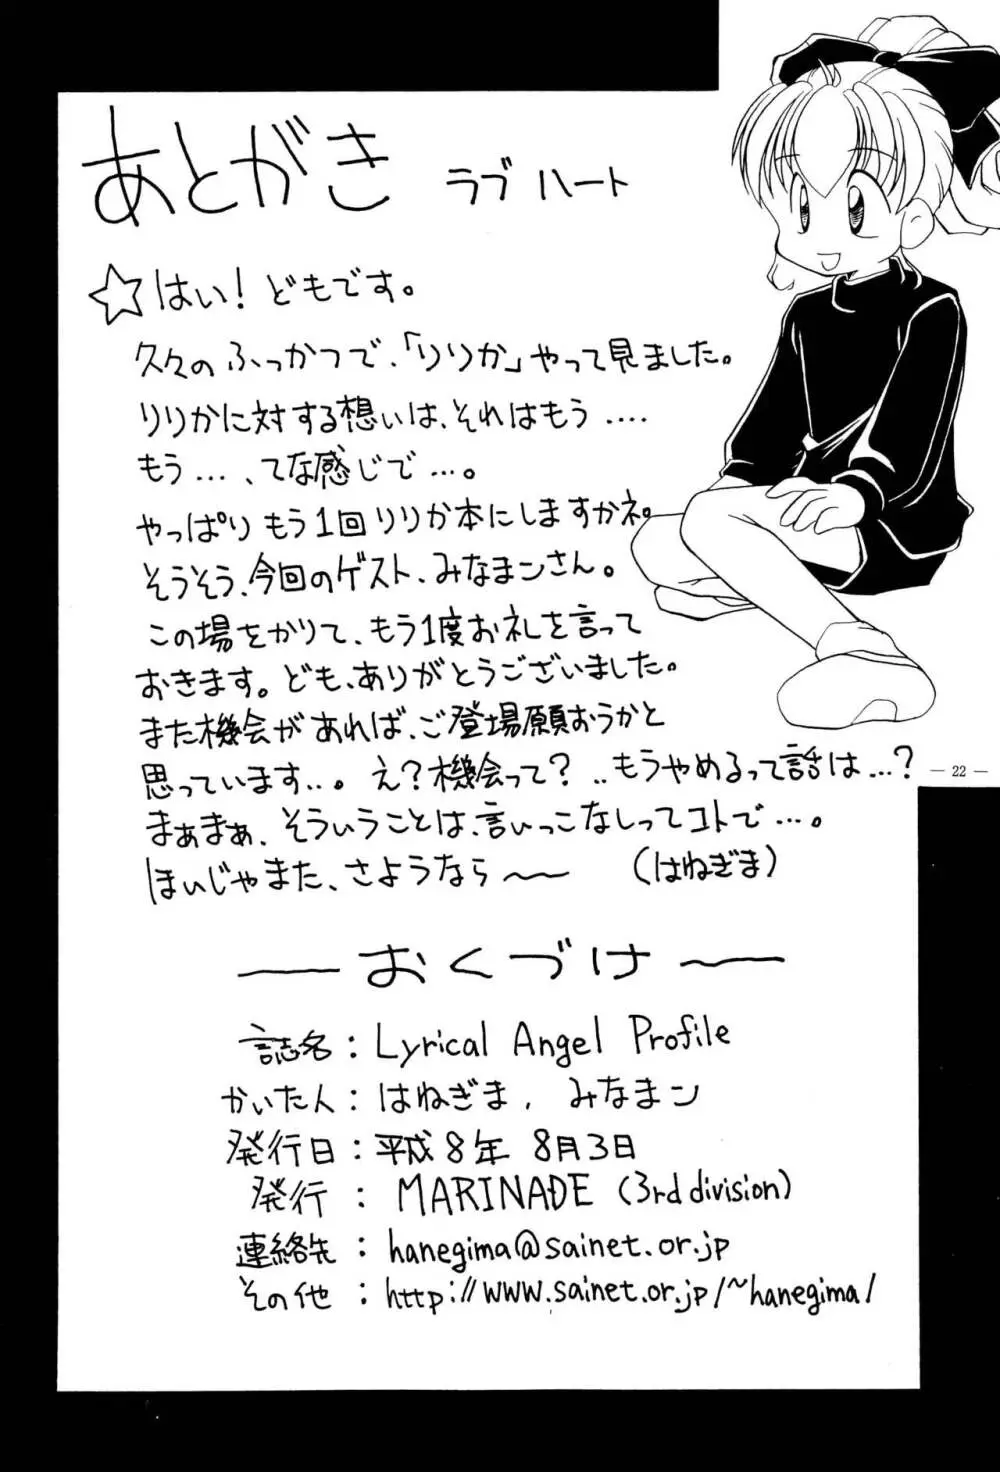 あとがき ラブ ハート
☆はい！どもです。
久々のふっかつで、「りりか」やって見ました。
りりかに対する想いは、それはもう‥‥
もう…、てな感じで…。
やっぱりもう1回りりか本にしますかネ。
そうそう、今回のゲスト、みなまンさん。
この場をかりて、もう1度お礼を言って
おきます。ども、ありがとうございました。
また機会があれば、ご登場願おうかと
思っています…。え？機会って？‥もうやめるって話は…？
まぁまぁ、そういうことは、言いっこなしってコトで…。
ほいじゃまた、さようなら〜 （はねぎま）
— 22 —
—おくづけ—
誌名：Lyrical Angel Profile
かいた人：はねぎま、みなまン
発行日：平成8年 8月3日
発行：MARINADE (3rd division)
連絡先：hanegima@sainet.or.jp
その他：http://www.sainet.or.jp/~hanegima/